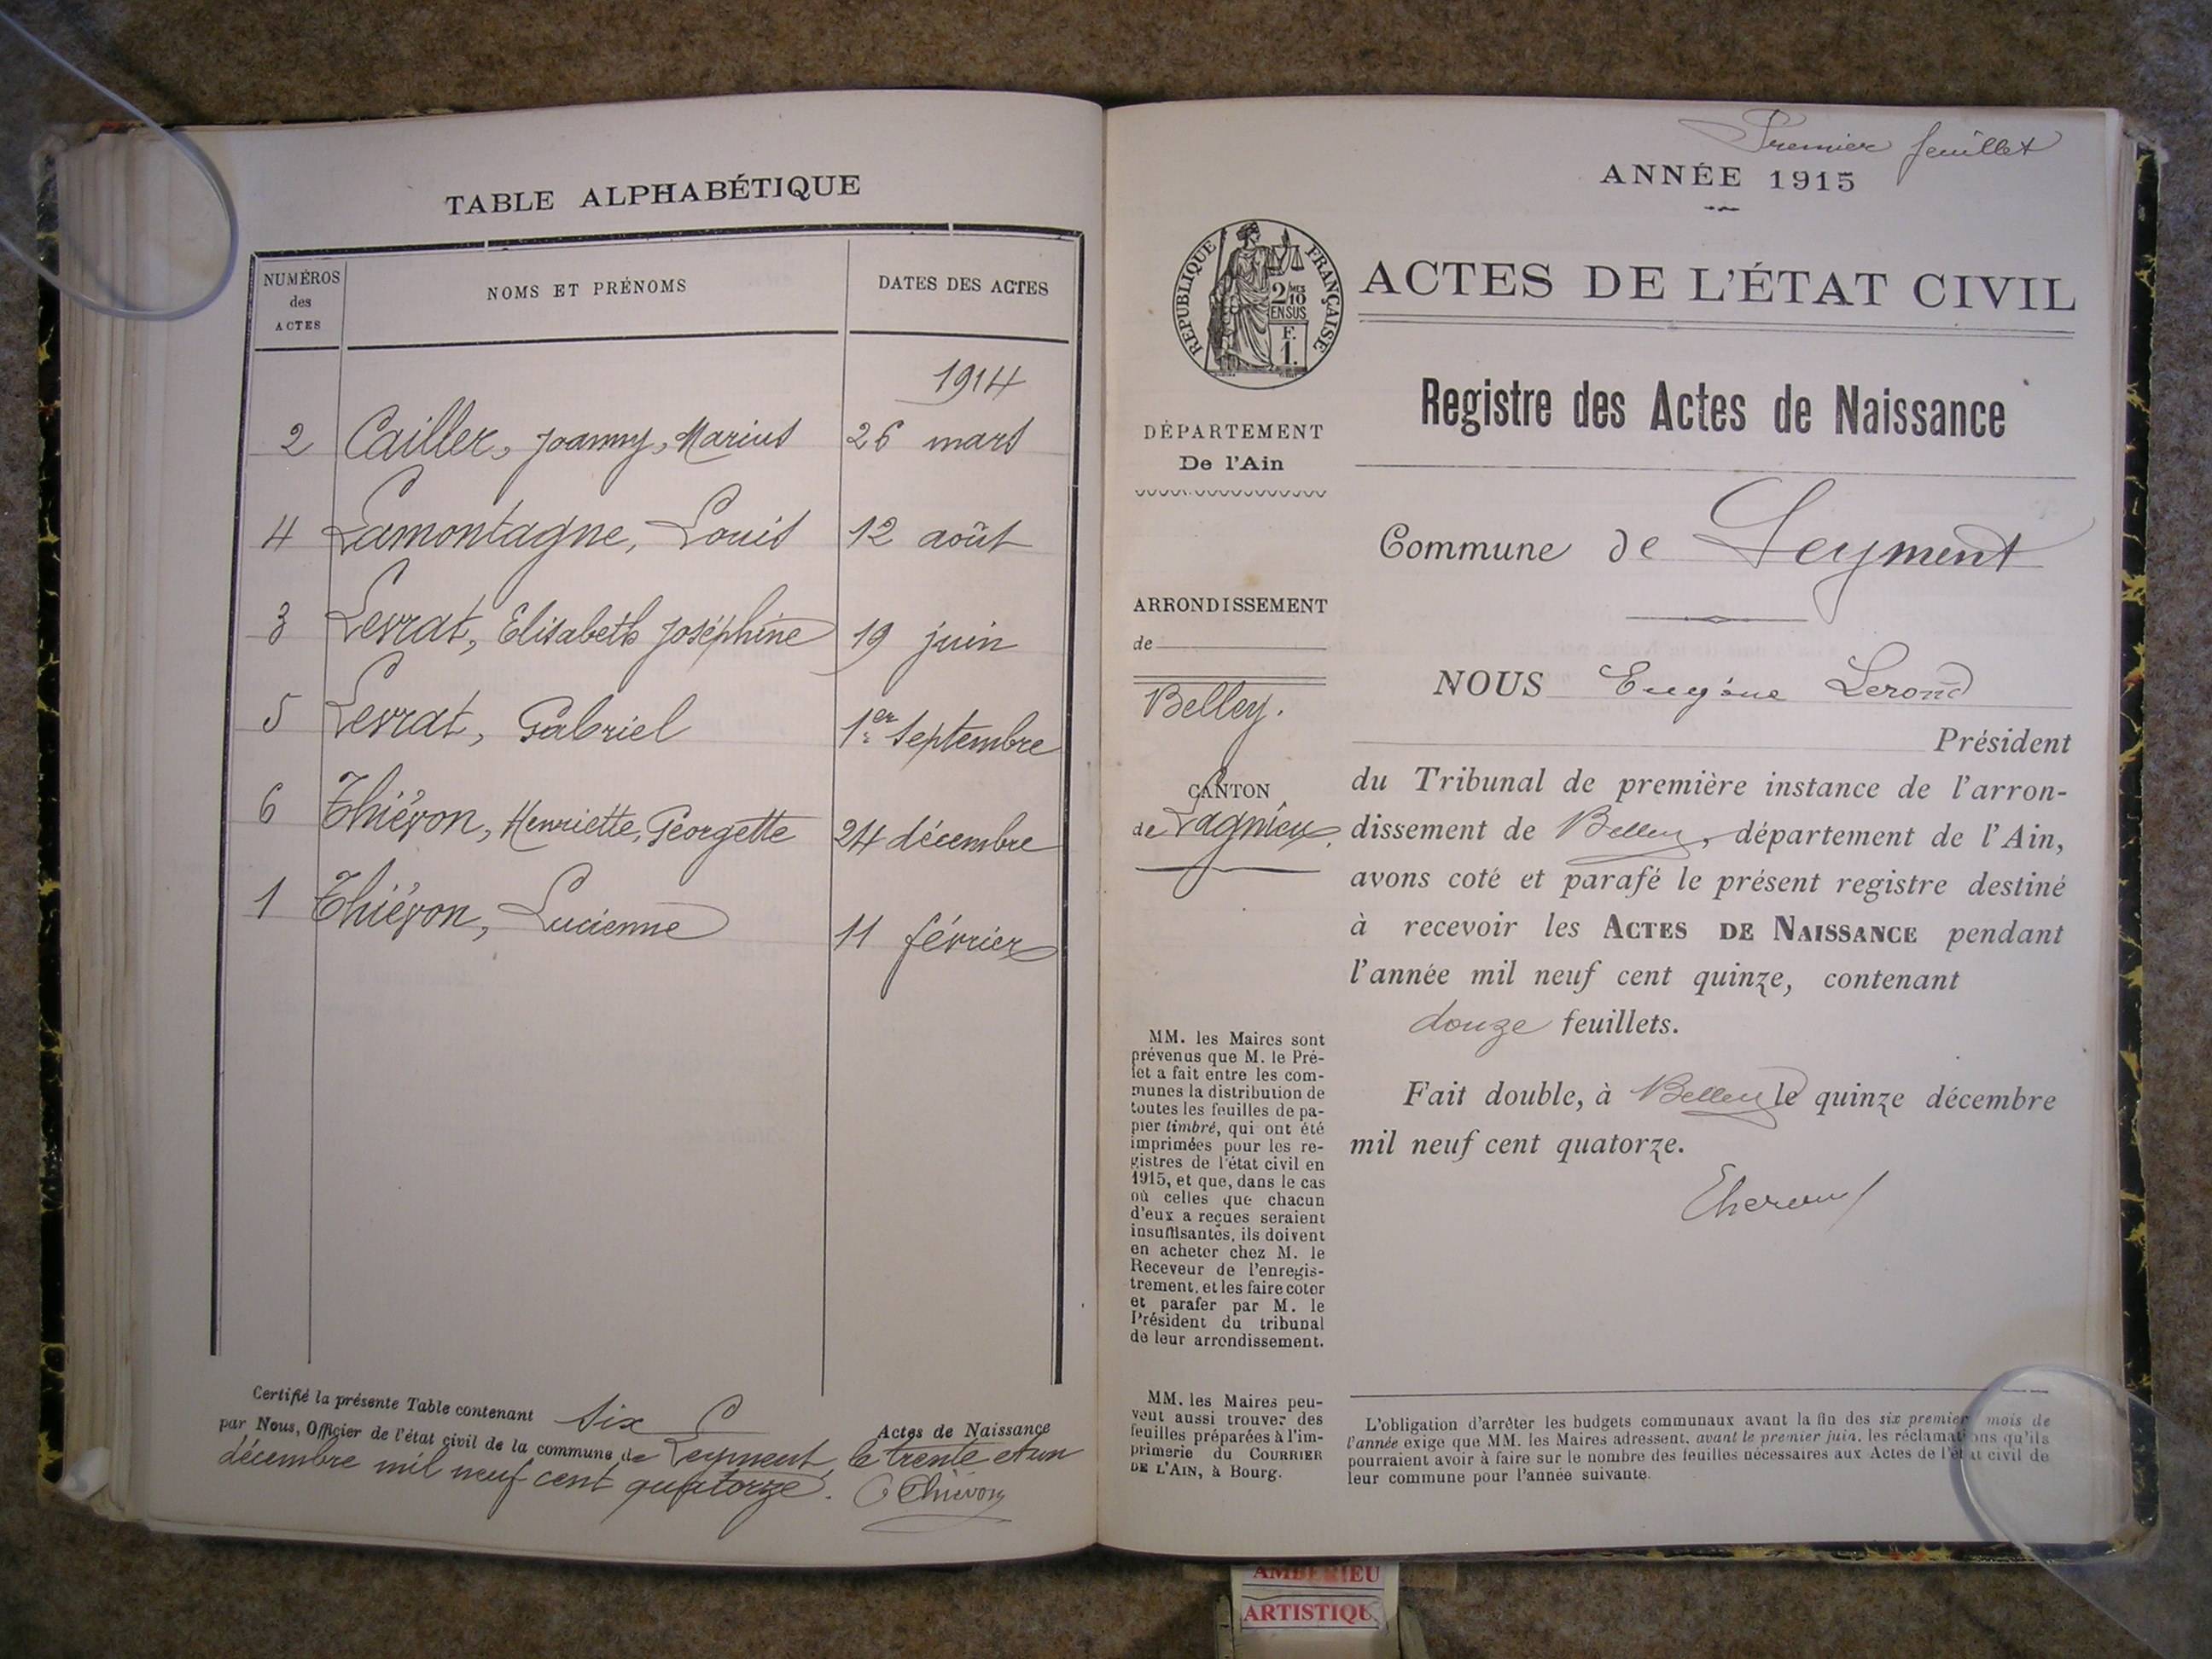 TABLE ALPHABÉTIQUE
NUMÉROS
des
ACTES
NOMS ET PRÉNOMS
DATES DES ACTES
1914
2 Cailler, Joanny, Marius 26 mars
4 Lamontagne, Louis 12 août
3 Levrat, Elisabeth Joséphine 19 juin
5 Levrat, Gabriel 1er Septembre
6 Thiévon, Henriette, Georgette 24 décembre
1 Thiévon, Lucienne 11 février
Certifié la présente Table contenant six Actes de Naissance
par Nous, Officier de l'état civil de la commune de Leyment, le trente et un
décembre mil neuf cent quatorze. Thiévon
Premier feuillet
ANNÉE 1915
RÉPUBLIQUE FRANÇAISE
2 MES
10
EN SUS
F.
1.
ACTES DE L'ÉTAT CIVIL
Registre des Actes de Naissance
DÉPARTEMENT
De l'Ain
Commune de Leyment
ARRONDISSEMENT
de
Belley.
CANTON
de Lagnieu.
NOUS Eugène Lerond
Président
du Tribunal de première instance de l'arron-
dissement de Belley, département de l'Ain,
avons coté et parafé le présent registre destiné
à recevoir les ACTES DE NAISSANCE pendant
l'année mil neuf cent quinze, contenant
douze feuillets.
Fait double, à Belley le quinze décembre
mil neuf cent quatorze.
MM. les Maires sont
prévenus que M. le Pré-
fet a fait entre les com-
munes la distribution de
toutes les feuilles de pa-
pier timbré, qui ont été
imprimées pour les re-
gistres de l'état civil en
1915, et que, dans le cas
où celles que chacun
d'eux a reçues seraient
insuffisantes, ils doivent
en acheter chez M. le
Receveur de l'enregis-
trement, et les faire coter
et parafer par M. le
Président du tribunal
de leur arrondissement.
MM. les Maires peu-
vent aussi trouver des
feuilles préparées à l'im-
primerie du COURRIER
DE L'AIN, à Bourg.
L'obligation d'arrêter les budgets communaux avant la fin des six premiers mois de
l'année exige que MM. les Maires adressent, avant le premier juin, les réclamations qu'ils
pourraient avoir à faire sur le nombre des feuilles nécessaires aux Actes de l'état civil de
leur commune pour l'année suivante.
AMBERIEU
ARTISTIQU